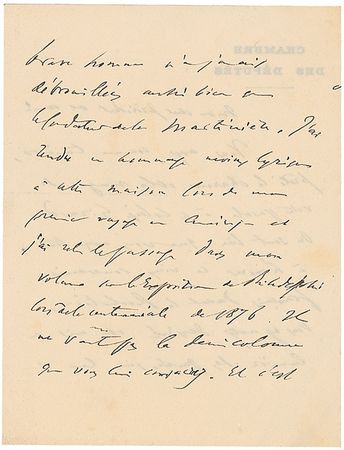 CHAMBRE
DES DÉPUTÉS
brave homme n'a jamais
débrouillés aussi bien que
le fondateur de la Martinière. J'ai
rendu un hommage
à cette maison lors de mon
premier voyage en Amérique et
j'ai le passage dans mon
volume sur l'Exposition de Philadelphie
lors de centenaire de 1876. Il
ne vaut pas la demi colonne
que vous lui consacrez. Et c'est